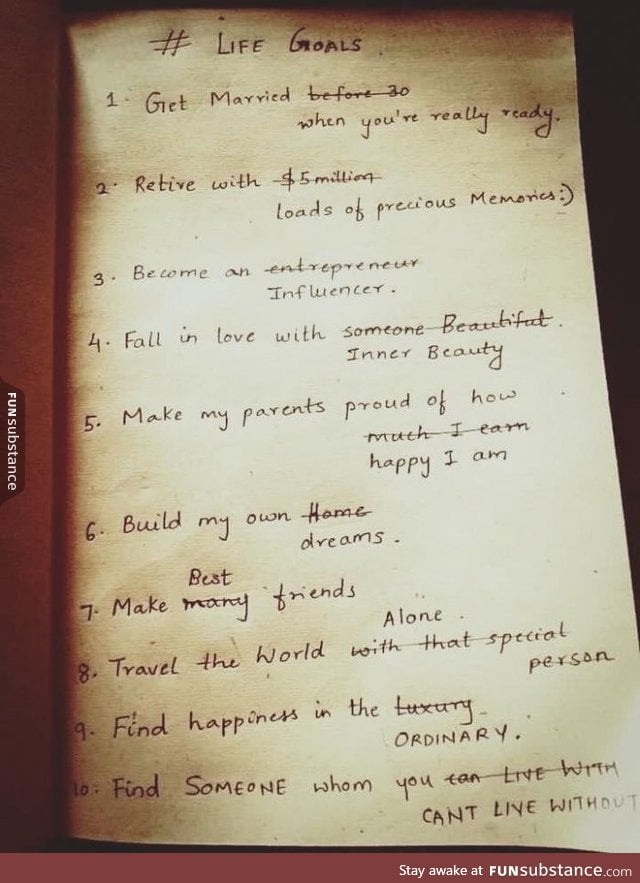 # LIFE GOALS
1. Get Married ~~before 30~~
when you're really ready.
2. Retire with ~~$5million~~
loads of precious Memories:)
3. Become an ~~entrepreneur~~
Influencer.
4. Fall in love with ~~someone Beautiful~~.
Inner Beauty
5. Make my parents proud of how
~~much I earn~~
happy I am
6. Build my own ~~Home~~
dreams.
Best
7. Make ~~many~~ friends
Alone.
8. Travel the World ~~with that special~~
person
9. Find happiness in the ~~Luxury~~
ORDINARY.
10. Find SOMEONE whom you ~~can LIVE WITH~~
CANT LIVE WITHOUT
FUNsubstance
Stay awake at FUNsubstance.com